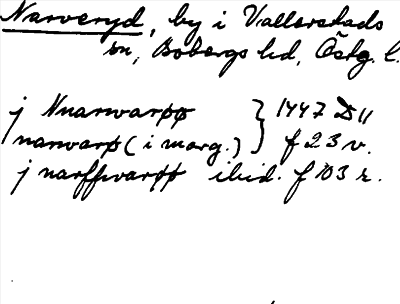 Narveryd, by i Vallerstads
sn, Bobergs hd, Östg. l.
j Nnarwarpp } 1447 D 11
narwarp (i marg.) } f 23 v.
j narffwarpp ibid. f 103 r.